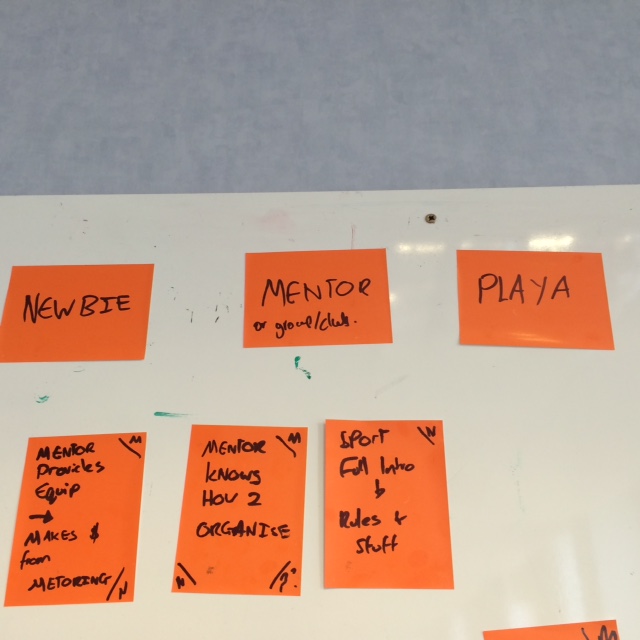 NEWBIE
MENTOR
or group/club.
PLAYA
MENTOR \M
Provides
Equip
→
MAKES $
from
METORING /N
MENTOR \M
KNOWS
HOW 2
ORGANISE
\N /?
SPORT \N
Full Intro
↓
Rules &
Stuff
\M